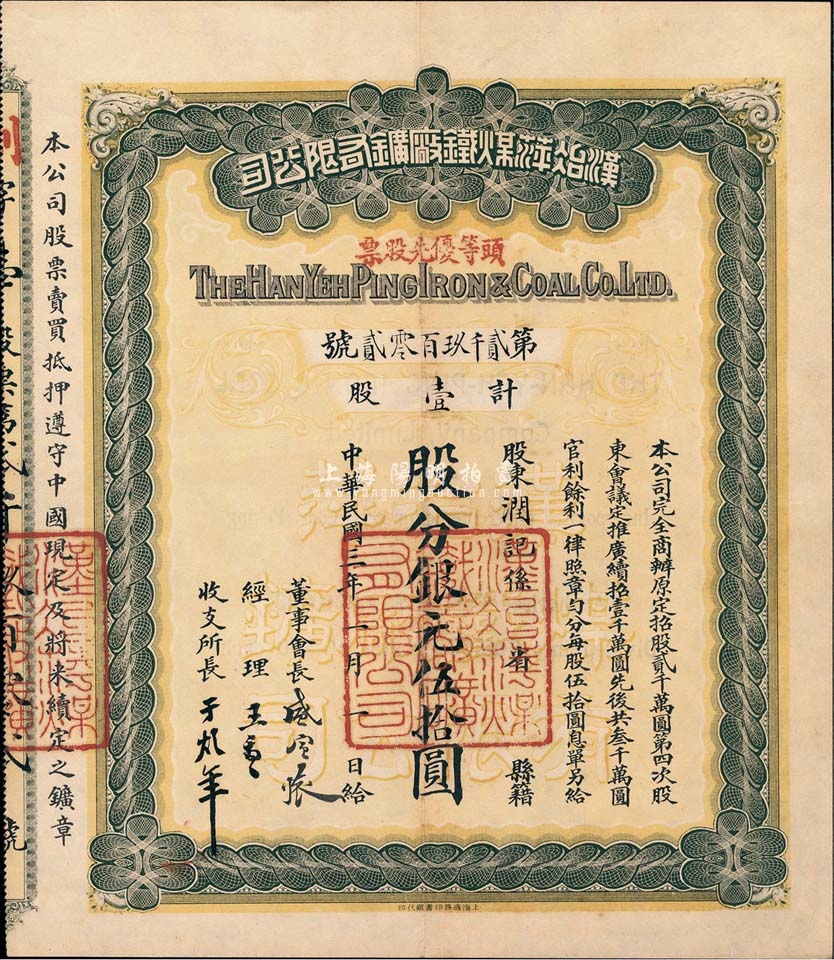 漢冶萍煤鐵廠礦有限公司
頭等優先股票
THE HAN YEH PING IRON & COAL CO. LTD.
第貳千玖百零貳號
計壹股
本公司完全商辦原定招股貳千萬圓第四次股
東會議定推廣續招壹千萬圓先後共叁千萬圓
官利餘利一律照章勻分每股伍拾圓息單另給
股東潤記係 省 縣籍
股分銀元伍拾圓
中華民國三年一月一日給
董事會長 盛宣懷
經理 王
收支所長 于
本公司股票賣買抵押遵守中國現定及將來續定之鑛章
股票第貳千玖百零貳號
上海陽明拍賣
www.yangmingauction.com
上海商務印書館代印